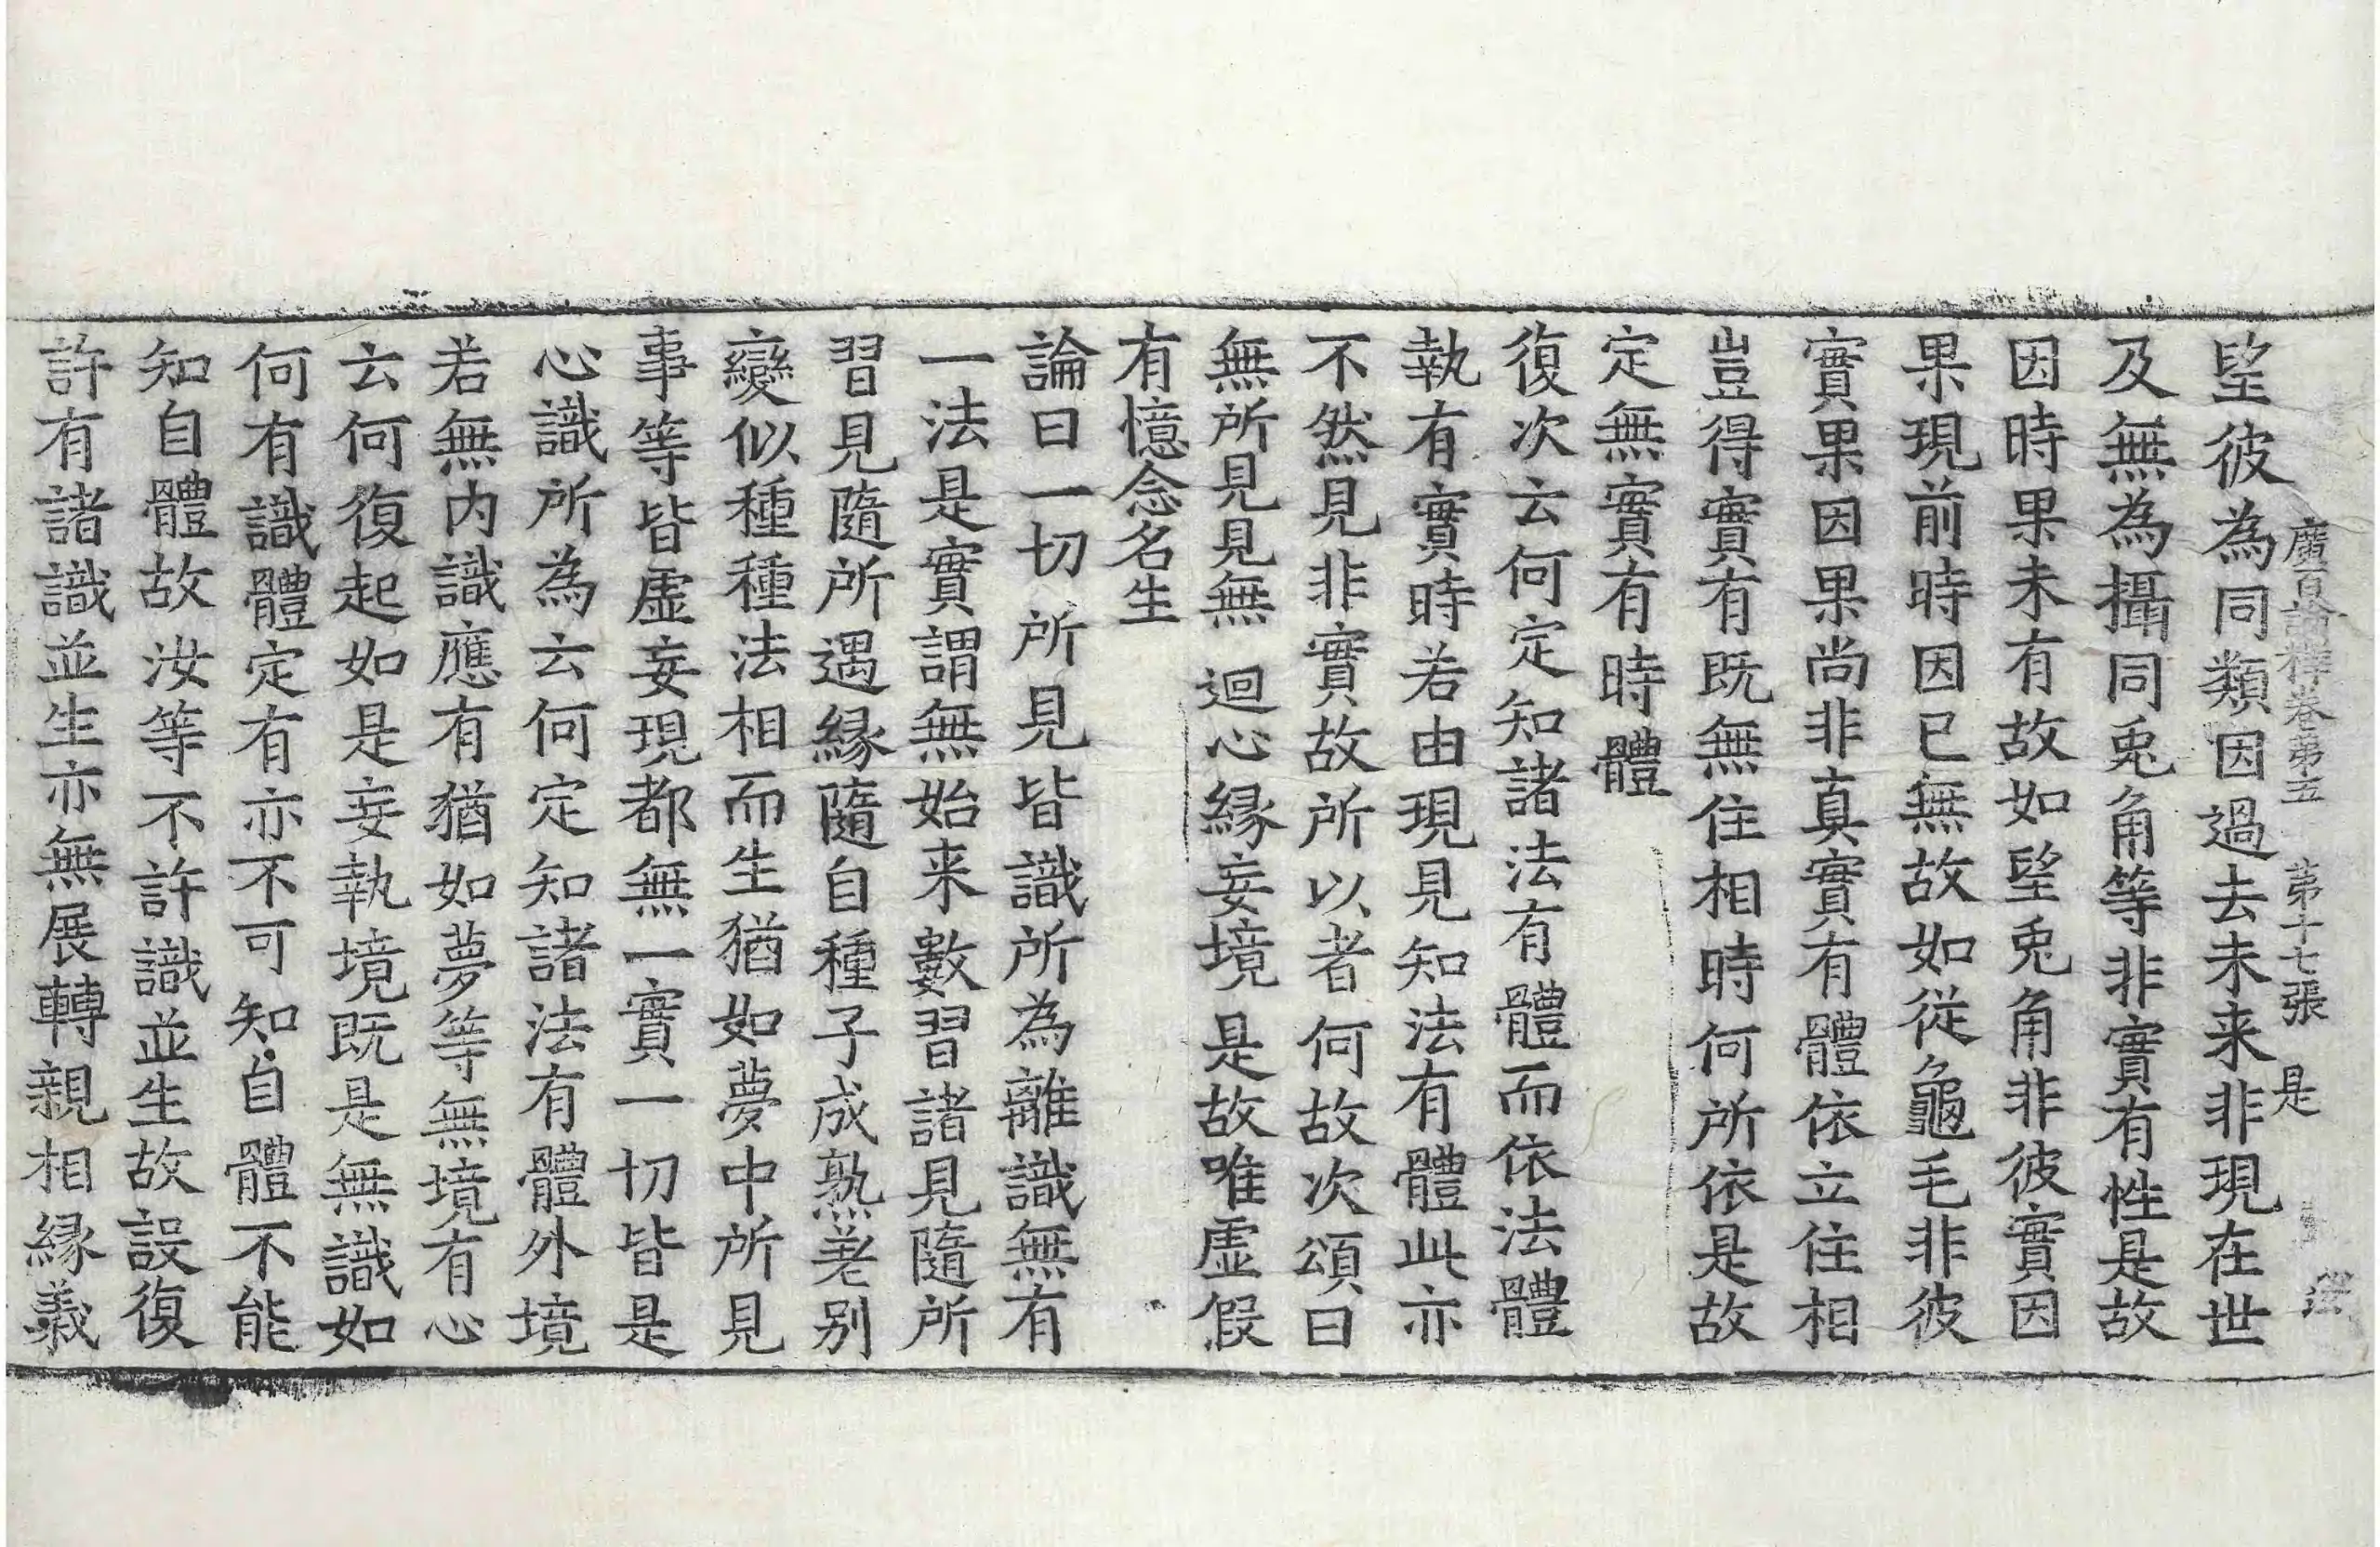 廣百論釋卷第五 第十七張 是
望彼為同類因過去未来非現在世
及無為攝同兎角等非實有性是故
因時果未有故如望兎角非彼實因
果現前時因已無故如從龜毛非彼
實果因果尚非真實有體依立住相
豈得實有既無住相時何所依是故
定無實有時體
復次云何定知諸法有體而依法體
執有實時若由現見知法有體此亦
不然見非實故所以者何故次頌曰
無所見見無 迴心緣妄境 是故唯虛假
有憶念名生
論曰一切所見皆識所為離識無有
一法是實謂無始来數習諸見隨所
習見隨所遇緣隨自種子成熟差别
變似種種法相而生猶如夢中所見
事等皆虛妄現都無一實一切皆是
心識所為云何定知諸法有體外境
若無内識應有猶如夢等無境有心
云何復起如是妄執境既是無識如
何有識體定有亦不可知自體不能
知自體故汝等不許識並生故設復
許有諸識並生亦無展轉親相緣義